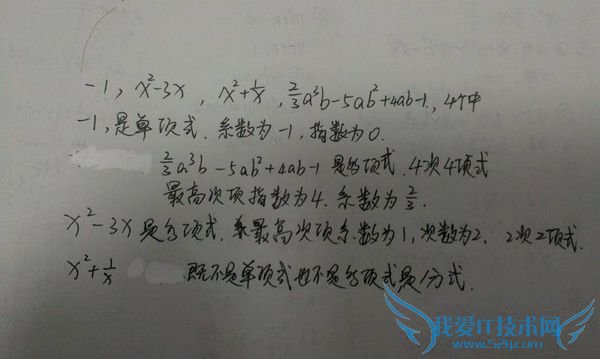 -1, x²-3x, x²+1/x, 2/3a³b-5ab²+4ab-1, 4个中
-1, 是单项式. 系数为-1, 指数为0.
2/3a³b-5ab²+4ab-1 是多项式. 4次4项式
最高次项指数为4. 系数为2/3.
x²-3x是多项式. 最高次项系数为1, 次数为2. 2次2项式.
x²+1/x 既不是单项式也不是多项式是分式.
我爱IT技术网
www.52ij.com